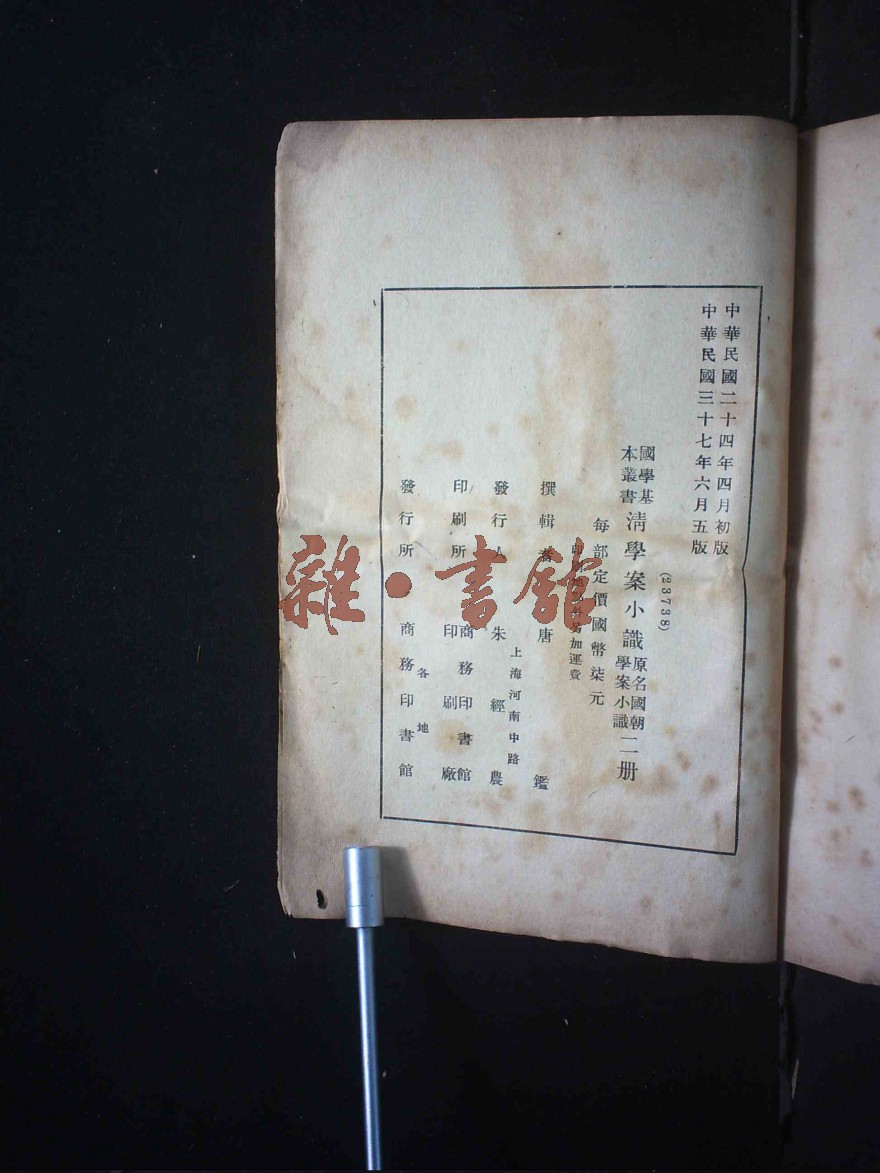 中華民國二十四年四月初版
中華民國三十七年六月五版
(23738)
國學基本叢書
清學案小識
原名國朝學案小識
二册
每部定價國幣柒元
加運費
撰輯者 唐鑑
發行人 朱經農
上海河南中路
印刷所 商務印書館印刷廠
發行所 商務印書館
各地
雜·書館